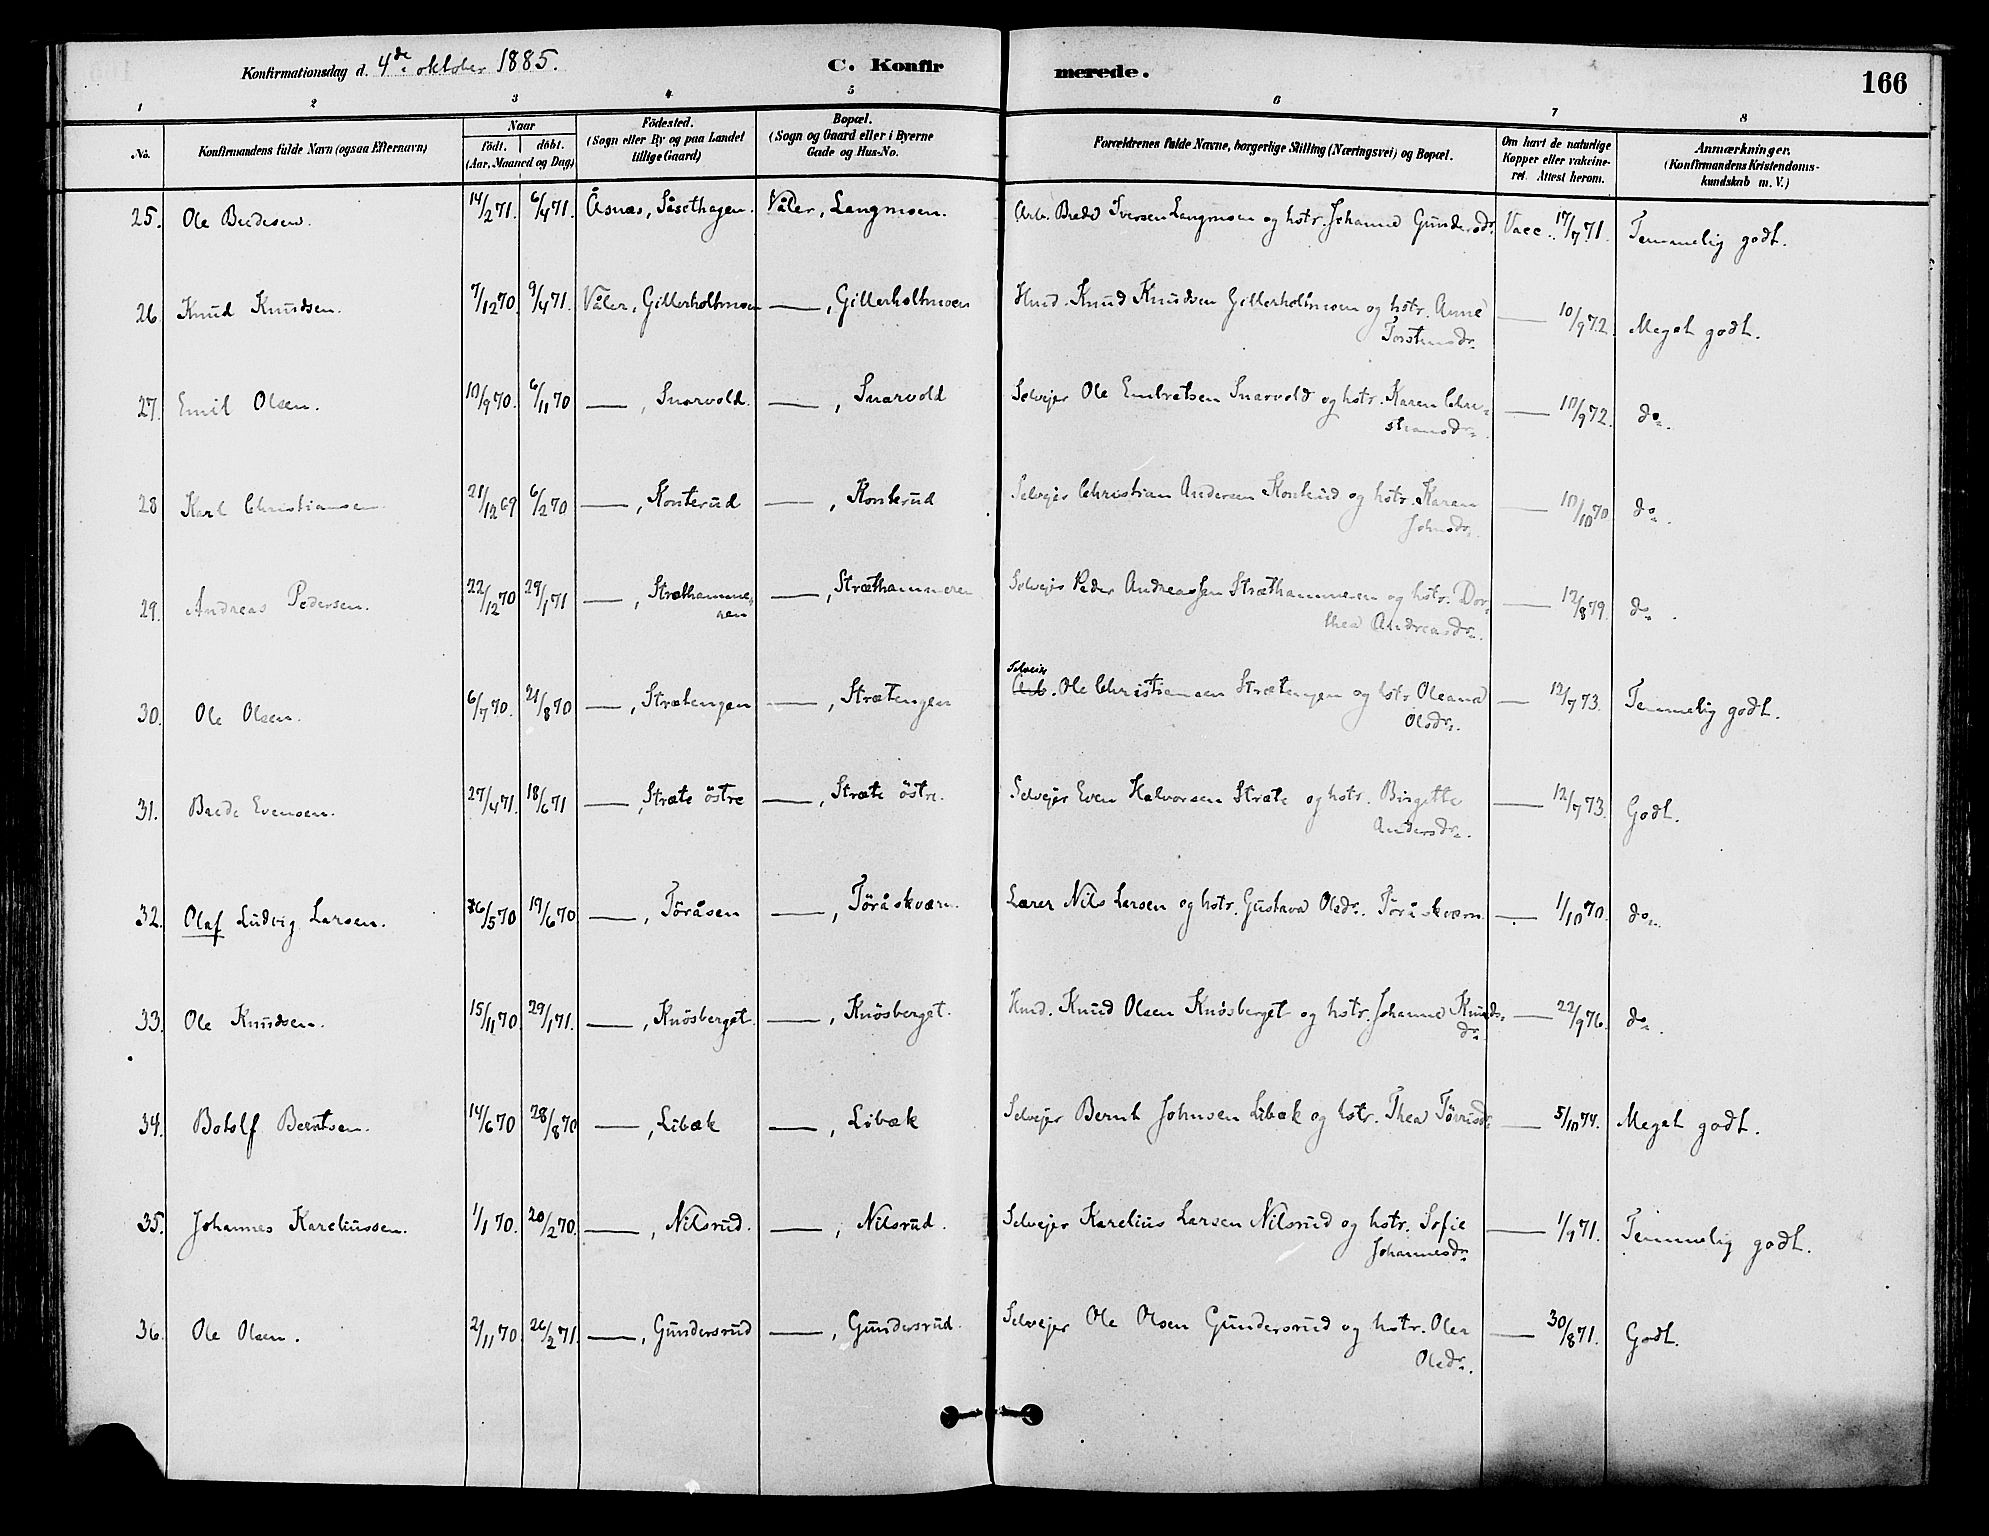 Konfirmationsdag d. 4de oktober 1885. C. Konfirmerede. 166
1 2 3 4 5 6 7 8
No. Konfirmandens fulde Navn (ogsaa Efternavn) Naar født. døbt. (Aar, Maaned og Dag) Fødested. (Sogn eller By og paa Landet tillige Gaard) Bopæl. (Sogn og Gaard eller i Byerne Gade og Hus-No. Forældrenes fulde Navne, borgerlige Stilling (Næringsvei) og Bopæl. Om havt de naturlige Kopper eller vakcineret. Attest herom. Anmærkninger. (Konfirmandens Kristendomskundskab m. V.)
25. Ole Bredesen. 14/2 71. 6/4 71. Åsnæs, Såsethagen. Våler, Langmoen. Arb. Brede Iversen Langmoen og hstr. Johanne Gundersdr. Vacc. 17/7 71. Temmelig godt.
26. Knud Knudsen. 7/12 70. 9/4 71. Våler, Gillerholtmoen —, Gillerholtmoen Husd. Knud Knudsen Gillerholtmoen og hstr. Anne
Torstensdr. — 10/9 72. Meget godt.
27. Emil Olsen. 10/9 70. 6/11 70 —, Snarvold. —, Snarvold Selvejer Ole Embretsen Snarvold og hstr. Karen Chri-
stiansdr. — 10/9 72. do.
28 Karl Christiansen 21/12 69 6/2 70 —, Konterud —, Konterud Selvejer Christian Andersen Konterud og hstr. Karen
Johnsdr. — 10/10 70. do.
29. Andreas Pedersen. 22/12 70 29/1 71 —, Stræthamme-
ren —, Stræthammeren Selvejer Peder Andreassen Stræthammeren og hstr. Dor-
thea Andreasdr. — 12/8 79. do.
Selveier
30. Ole Olsen. 6/7 70. 21/8 70 —, Strætengen —, Strætengen Arb. Ole Christiansen Strætengen og hstr. Oleana
Olsdr. — 12/7 73. Temmelig godt.
31. Brede Evensen. 27/4 71. 18/6 71 —, Stræte östre —, Stræte östre. Selvejer Even Halvorsen Stræte og hstr. Birgette
Andersdr. — 12/7 73. Godt.
32. Olaf Ludvig Larsen. 26/5 70 19/6 70 —, Töråsen —, Töråskværn. Lærer Nils Larsen og hstr. Gustava Olsdr. Töråskværn — 1/10 70. do.
33. Ole Knudsen. 15/11 70 29/1 71. —, Knösberget. —, Knösberget. Husd. Knud Olsen Knösberget og hstr. Johanne Knuds-
dr. — 22/9 76. do.
34. Botolf Berntsen. 14/6 70 28/8 70 —, Libæk —, Libæk Selvejer Bernt Johnsen Libæk og hstr. Thea Törrisdr. — 5/10 74. Meget godt.
35. Johannes Kareliussen. 1/1 70. 20/2 70. —, Nilsrud. —, Nilsrud. Selvejer Karelius Larsen Nilsrud og hstr. Sofie
Johannesdr. — 1/9 71. Temmelig godt.
36. Ole Olsen. 2/11 70. 26/2 71. —, Gundersrud —, Gundersrud. Selvejer Ole Olsen Gundersrud og hstr. Olea
Olsdr. — 30/8 71. Godt.